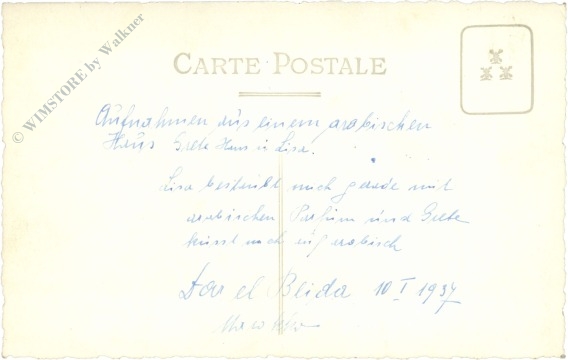 © WIMSTORE by Walkner
CARTE POSTALE
Aufnahmen aus einem arabischen
Haus Grete Hans u Lisa.
Lisa bestäubt mich gerade mit
arabischen Parfüm und Grete
küsst mich auf arabisch
Dar el Beida 10 I 1937
Marokko